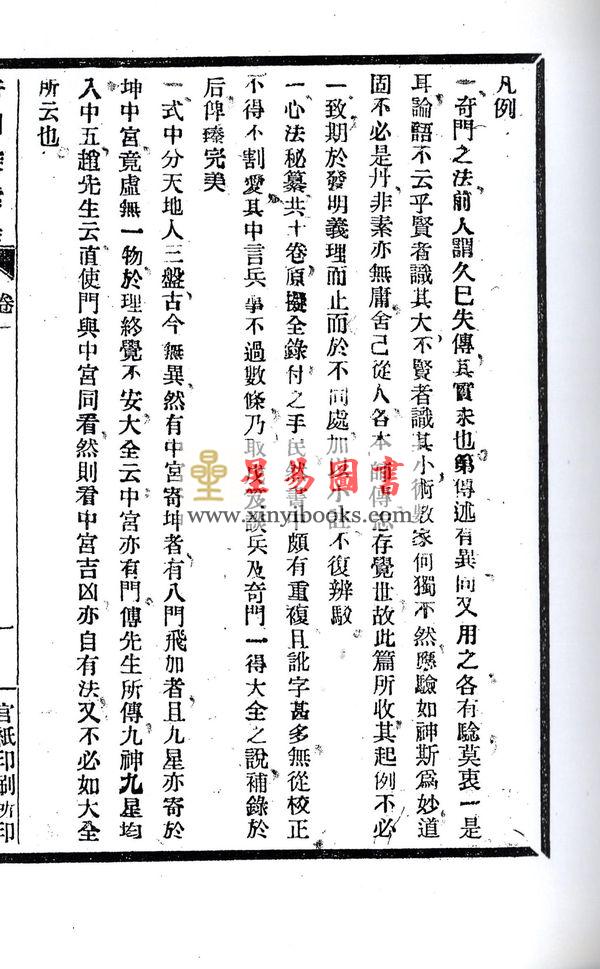 凡例
一奇門之法前人謂久已失傳其實未也第傳述有異同又用之各有驗莫衷一是
耳論語不云乎賢者識其大不賢者識其小術數家何獨不然應驗如神斯爲妙道
固不必是丹非素亦無庸舍己從人各本師傳志存覺世故此篇所收其起例不必
一致期於發明義理而止而於不同處加以小註不復辨駁
一心法秘纂共十卷原擬全錄付之手民然書中頗有重複且訛字甚多無從校正
不得不割愛其中言兵事不過數條乃取及談兵及奇門一得大全之說補錄於
后俾臻完美
一式中分天地人三盤古今無異然有中宮寄坤者有八門飛加者且九星亦寄於
坤中宮竟虛無一物於理終覺不安大全云中宮亦有門傅先生所傳九神九星均
入中五趙先生云直使門與中宮同看然則看中宮吉凶亦自有法又不必如大全
所云也
卷一
一
官紙印刷所印
星易圖書
www.xinyibooks.com